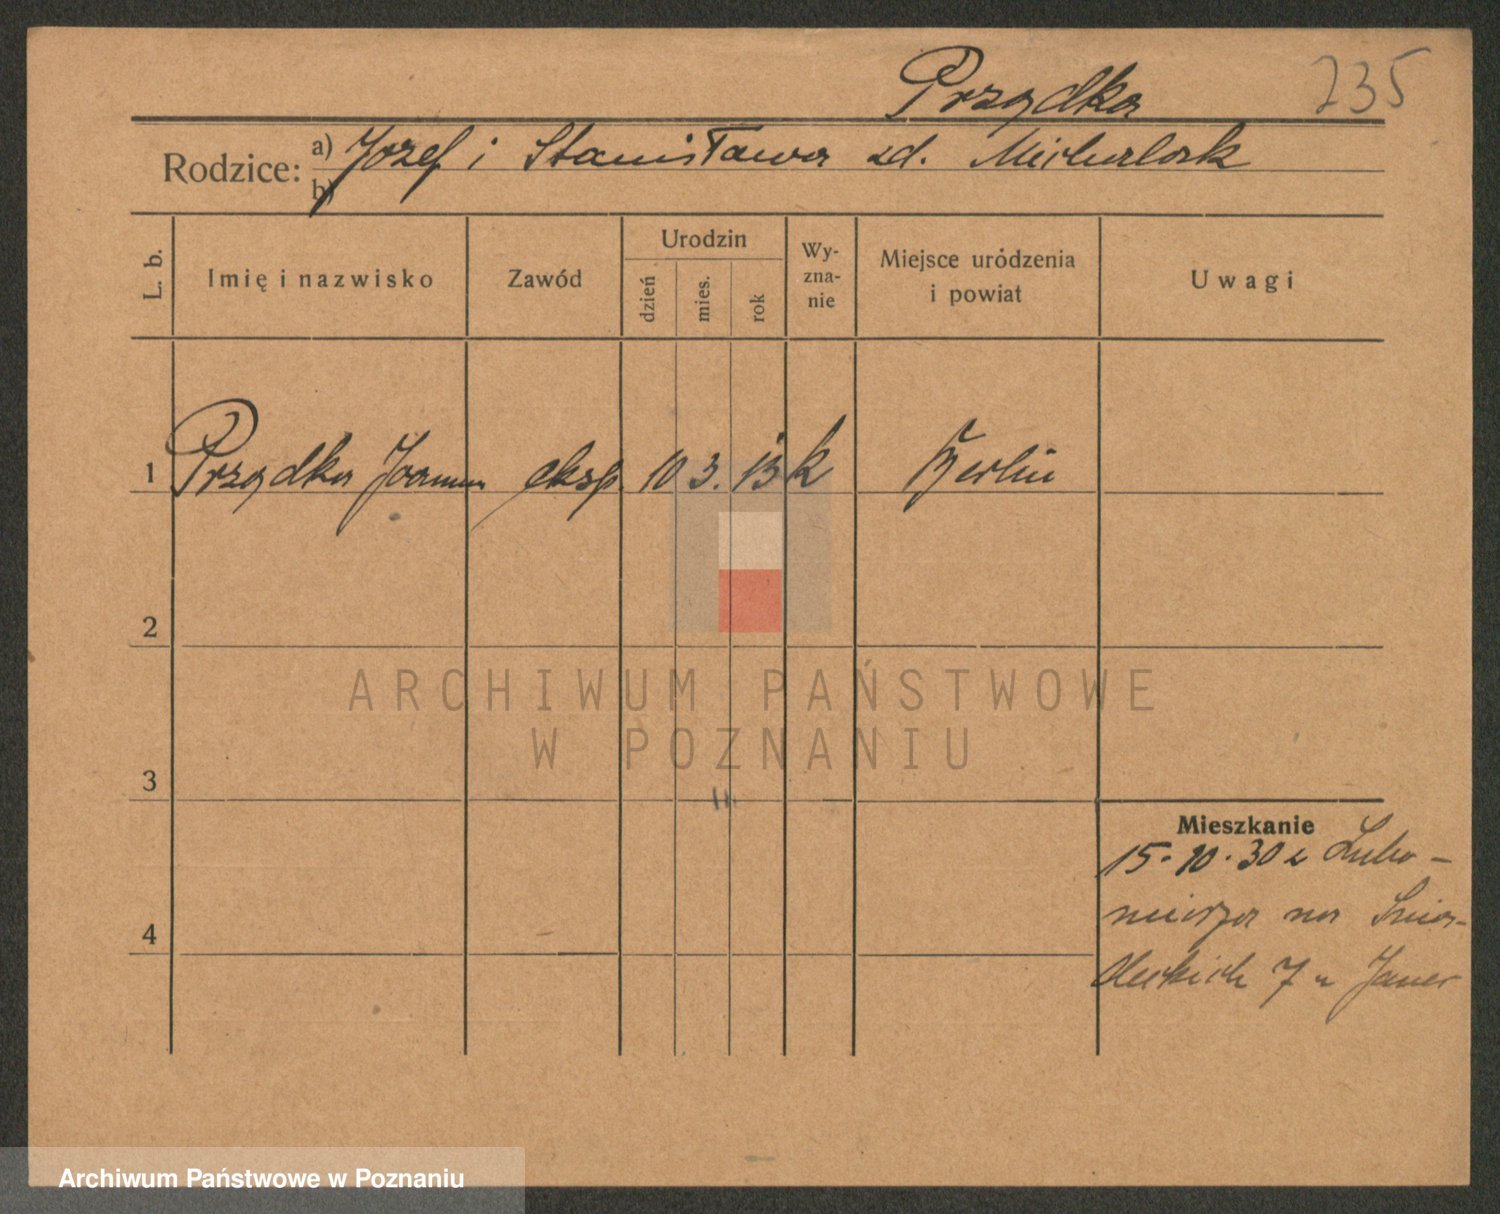 Prządka 235
Rodzice: a) Józef i Stanisława zd. Michalak
b)
L. b. Imię i nazwisko Zawód Urodzin dzień mies. rok Wy-
zna-
nie Miejsce uródzenia
i powiat Uwagi
1 Prządka Joanna eksp. 10 3. 13 k Berlin
2
ARCHIWUM PAŃSTWOWE
W POZNANIU
3
Mieszkanie
15.10.30 z Lubo-
mierza na Śnia-
deckich 7 u
4
Archiwum Państwowe w Poznaniu